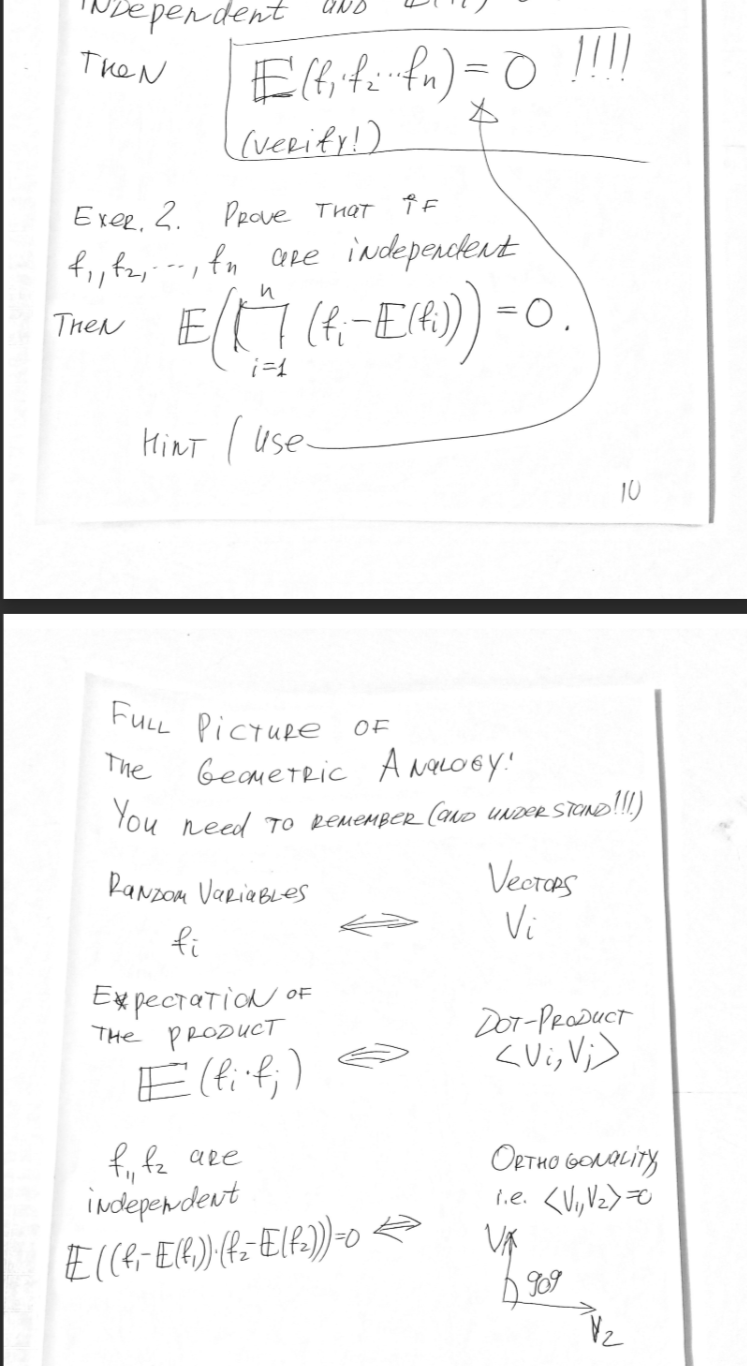 independent and
Then 𝔼(f₁·f₂···fₙ) = 0 !!!!
(verify!)
Exer. 2. Prove that if
f₁, f₂, ..., fₙ are independent
Then 𝔼(∏ᵢ₌₁ⁿ (fᵢ - 𝔼(fᵢ))) = 0.
Hint / Use
10
Full Picture of
The Geometric Analogy!
You need to remember (and understand!!!)
Random Variables ⟺ Vectors
fᵢ Vᵢ
Expectation of
the product ⟺ Dot-Product
𝔼(fᵢ·fⱼ) <Vᵢ, Vⱼ>
f₁, f₂ are Orthogonality
independent i.e. <V₁, V₂> = 0
𝔼((f₁-𝔼(f₁))·(f₂-𝔼(f₂))) = 0 ⟺
V₁
90°
V₂